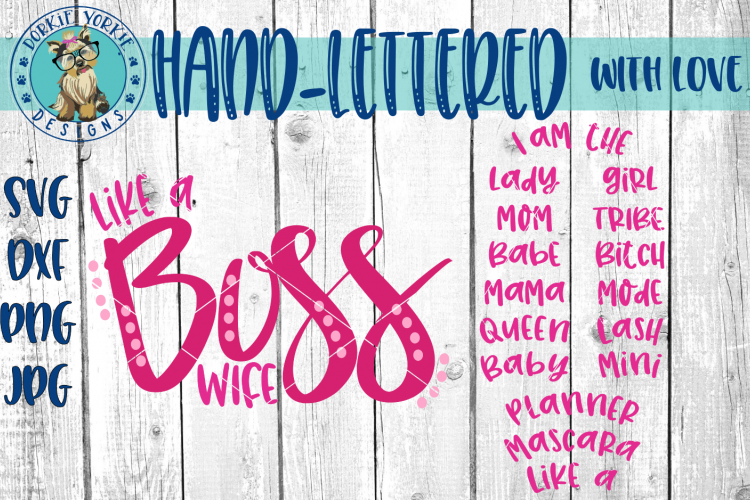 DORKIE YORKIE
DESIGNS
HAND-LETTERED
WITH LOVE
SVG
DXF
PNG
JPG
LIKE A
BOSS
WIFE
I AM THE
LADY GIRL
MOM TRIBE
BABE BITCH
MAMA MODE
QUEEN LASH
BABY MINI
PLANNER
MASCARA
LIKE A